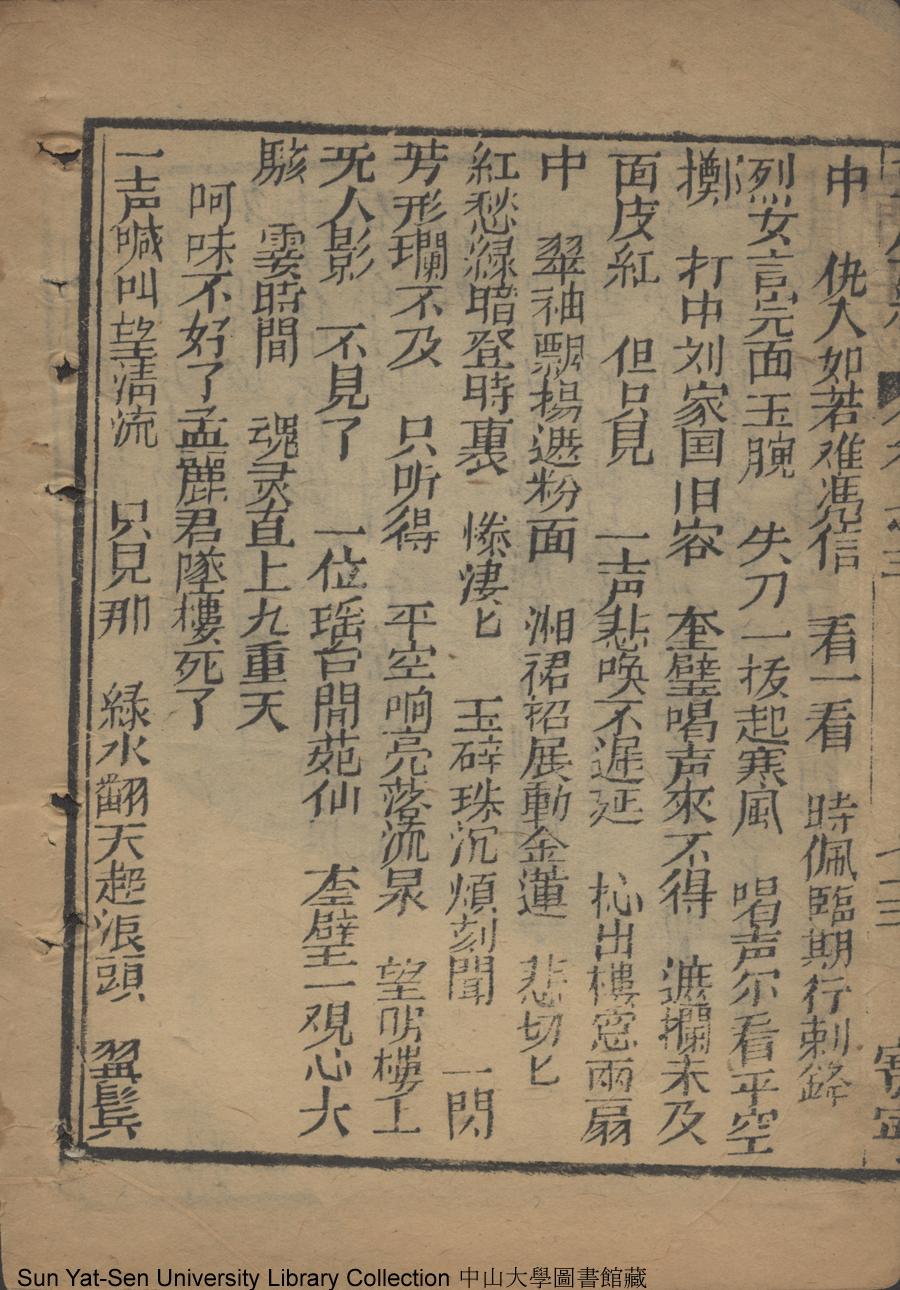 中　仇人如若难凴信　看一看　時佩臨期行刺鋒
烈女言完面玉腕　失刀一拔起寒風　唱声尔看平空
擲　打中刘家国旧容　奎璧喝声來不得　遮攔未及
面皮紅　但只見　一声悲唤不遲延　杺出樓窓兩扇
中　翠袖飄揚遮粉面　湘裙招展動金蓮　悲切匕
紅愁緑暗登時裏　惨凄匕　玉碎珠沉煩刻聞　一閃
芳形瓓不及　只听得　平空响亮落流泉　望明樓上
无人影　不見了　一位瑶台閬苑仙　奎璧一观心大
駭　霎時間　魂灵直上九重天
呵味不好了孟麗君墜樓死了
一声喊叫望清流　只見那　緑水翻天起浪頭　翼髭兵
Sun Yat-Sen University Library Collection 中山大學圖書館藏